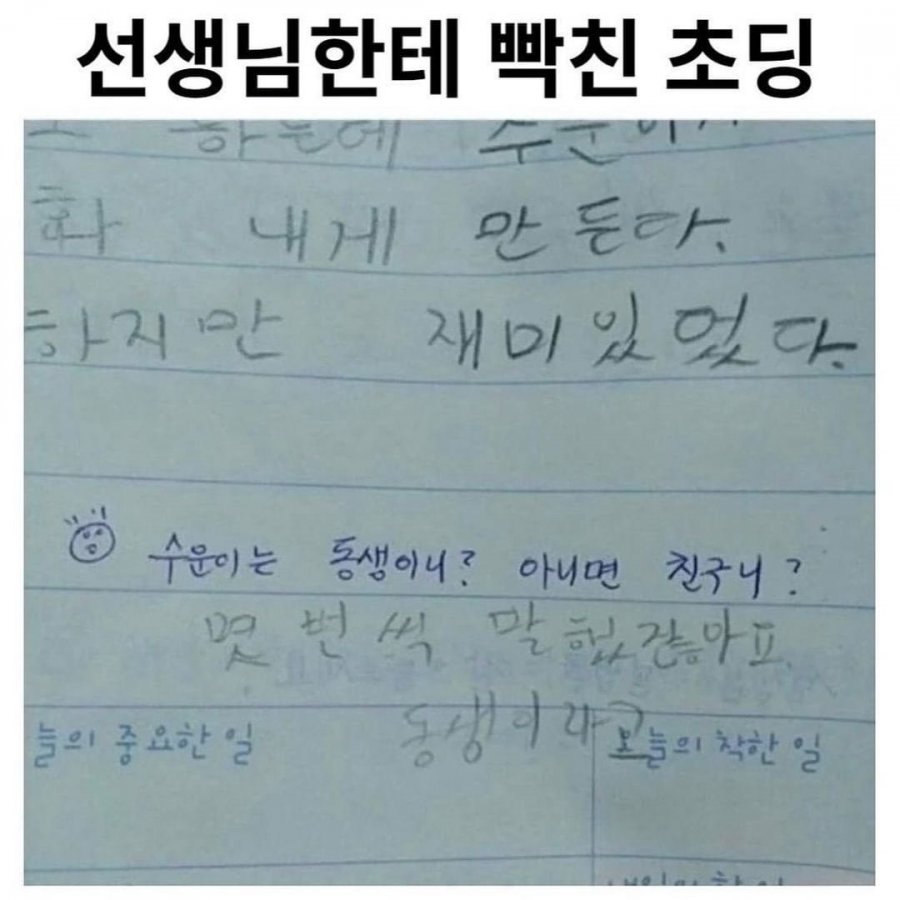 선생님한테 빡친 초딩
하는데 수운이가
화 내게 만든다.
하지만 재미있었다.
수운이는 동생이니? 아니면 친구니?
몇 번씩 말했잖아요
동생이라고
늘의 중요한 일
오늘의 착한 일